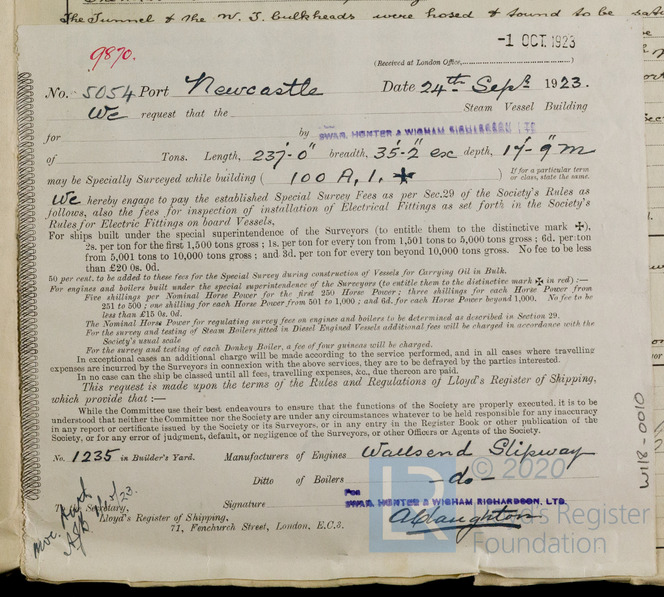 The Tunnel & the W. T. bulkheads were hosed & found to be
-1 OCT. 1923
9870.
(Received at London Office,........................)
No. 5054 Port Newcastle Date 24th Septr 1923.
We request that the Steam Vessel Building
for by SWAN, HUNTER & WIGHAM RICHARDSON LTD
of Tons. Length, 237'-0" breadth, 35'-2" exc depth, 17'-9" M
may be Specially Surveyed while building ( 100 A, 1. ✠ ) If for a particular term
or class, state the same.
We hereby engage to pay the established Special Survey Fees as per Sec.29 of the Society's Rules as
follows, also the fees for inspection of installation of Electrical Fittings as set forth in the Society's
Rules for Electric Fittings on board Vessels,
For ships built under the special superintendence of the Surveyors (to entitle them to the distinctive mark ✠),
2s. per ton for the first 1,500 tons gross; 1s. per ton for every ton from 1,501 tons to 5,000 tons gross; 6d. per ton
from 5,001 tons to 10,000 tons gross; and 3d. per ton for every ton beyond 10,000 tons gross. No fee to be less
than £20 0s. 0d.
50 per cent. to be added to these fees for the Special Survey during construction of Vessels for Carrying Oil in Bulk.
For engines and boilers built under the special superintendence of the Surveyors (to entitle them to the distinctive mark ✠ in red) :—
Five shillings per Nominal Horse Power for the first 250 Horse Power; three shillings for each Horse Power from
251 to 500; one shilling for each Horse Power from 501 to 1,000; and 6d. for each Horse Power beyond 1,000. No fee to be
less than £15 0s. 0d.
The Nominal Horse Power for regulating survey fees on engines and boilers to be determined as described in Section 29.
For the survey and testing of Steam Boilers fitted in Diesel Engined Vessels additional fees will be charged in accordance with the
Society's usual scale
For the survey and testing of each Donkey Boiler, a fee of four guineas will be charged.
In exceptional cases an additional charge will be made according to the service performed, and in all cases where travelling
expenses are incurred by the Surveyors in connexion with the above services, they are to be defrayed by the parties interested.
In no case can the ship be classed until all fees, travelling expenses, &c., due thereon are paid.
This request is made upon the terms of the Rules and Regulations of Lloyd's Register of Shipping,
which provide that :—
While the Committee use their best endeavours to ensure that the functions of the Society are properly executed, it is to be
understood that neither the Committee nor the Society are under any circumstances whatever to be held responsible for any inaccuracy
in any report or certificate issued by the Society or its Surveyors, or in any entry in the Register Book or other publication of the
Society, or for any error of judgment, default, or negligence of the Surveyors, or other Officers or Agents of the Society.
No. 1235 in Builder's Yard. Manufacturers of Engines Wallsend Slipway
Ditto of Boilers -do-
For
SWAN, HUNTER & WIGHAM RICHARDSON, LTD.
Secretary, Signature
Lloyd's Register of Shipping,
71, Fenchurch Street, London, E.C.3.
W118-0010
LR © 2020
Lloyd's Register
Foundation